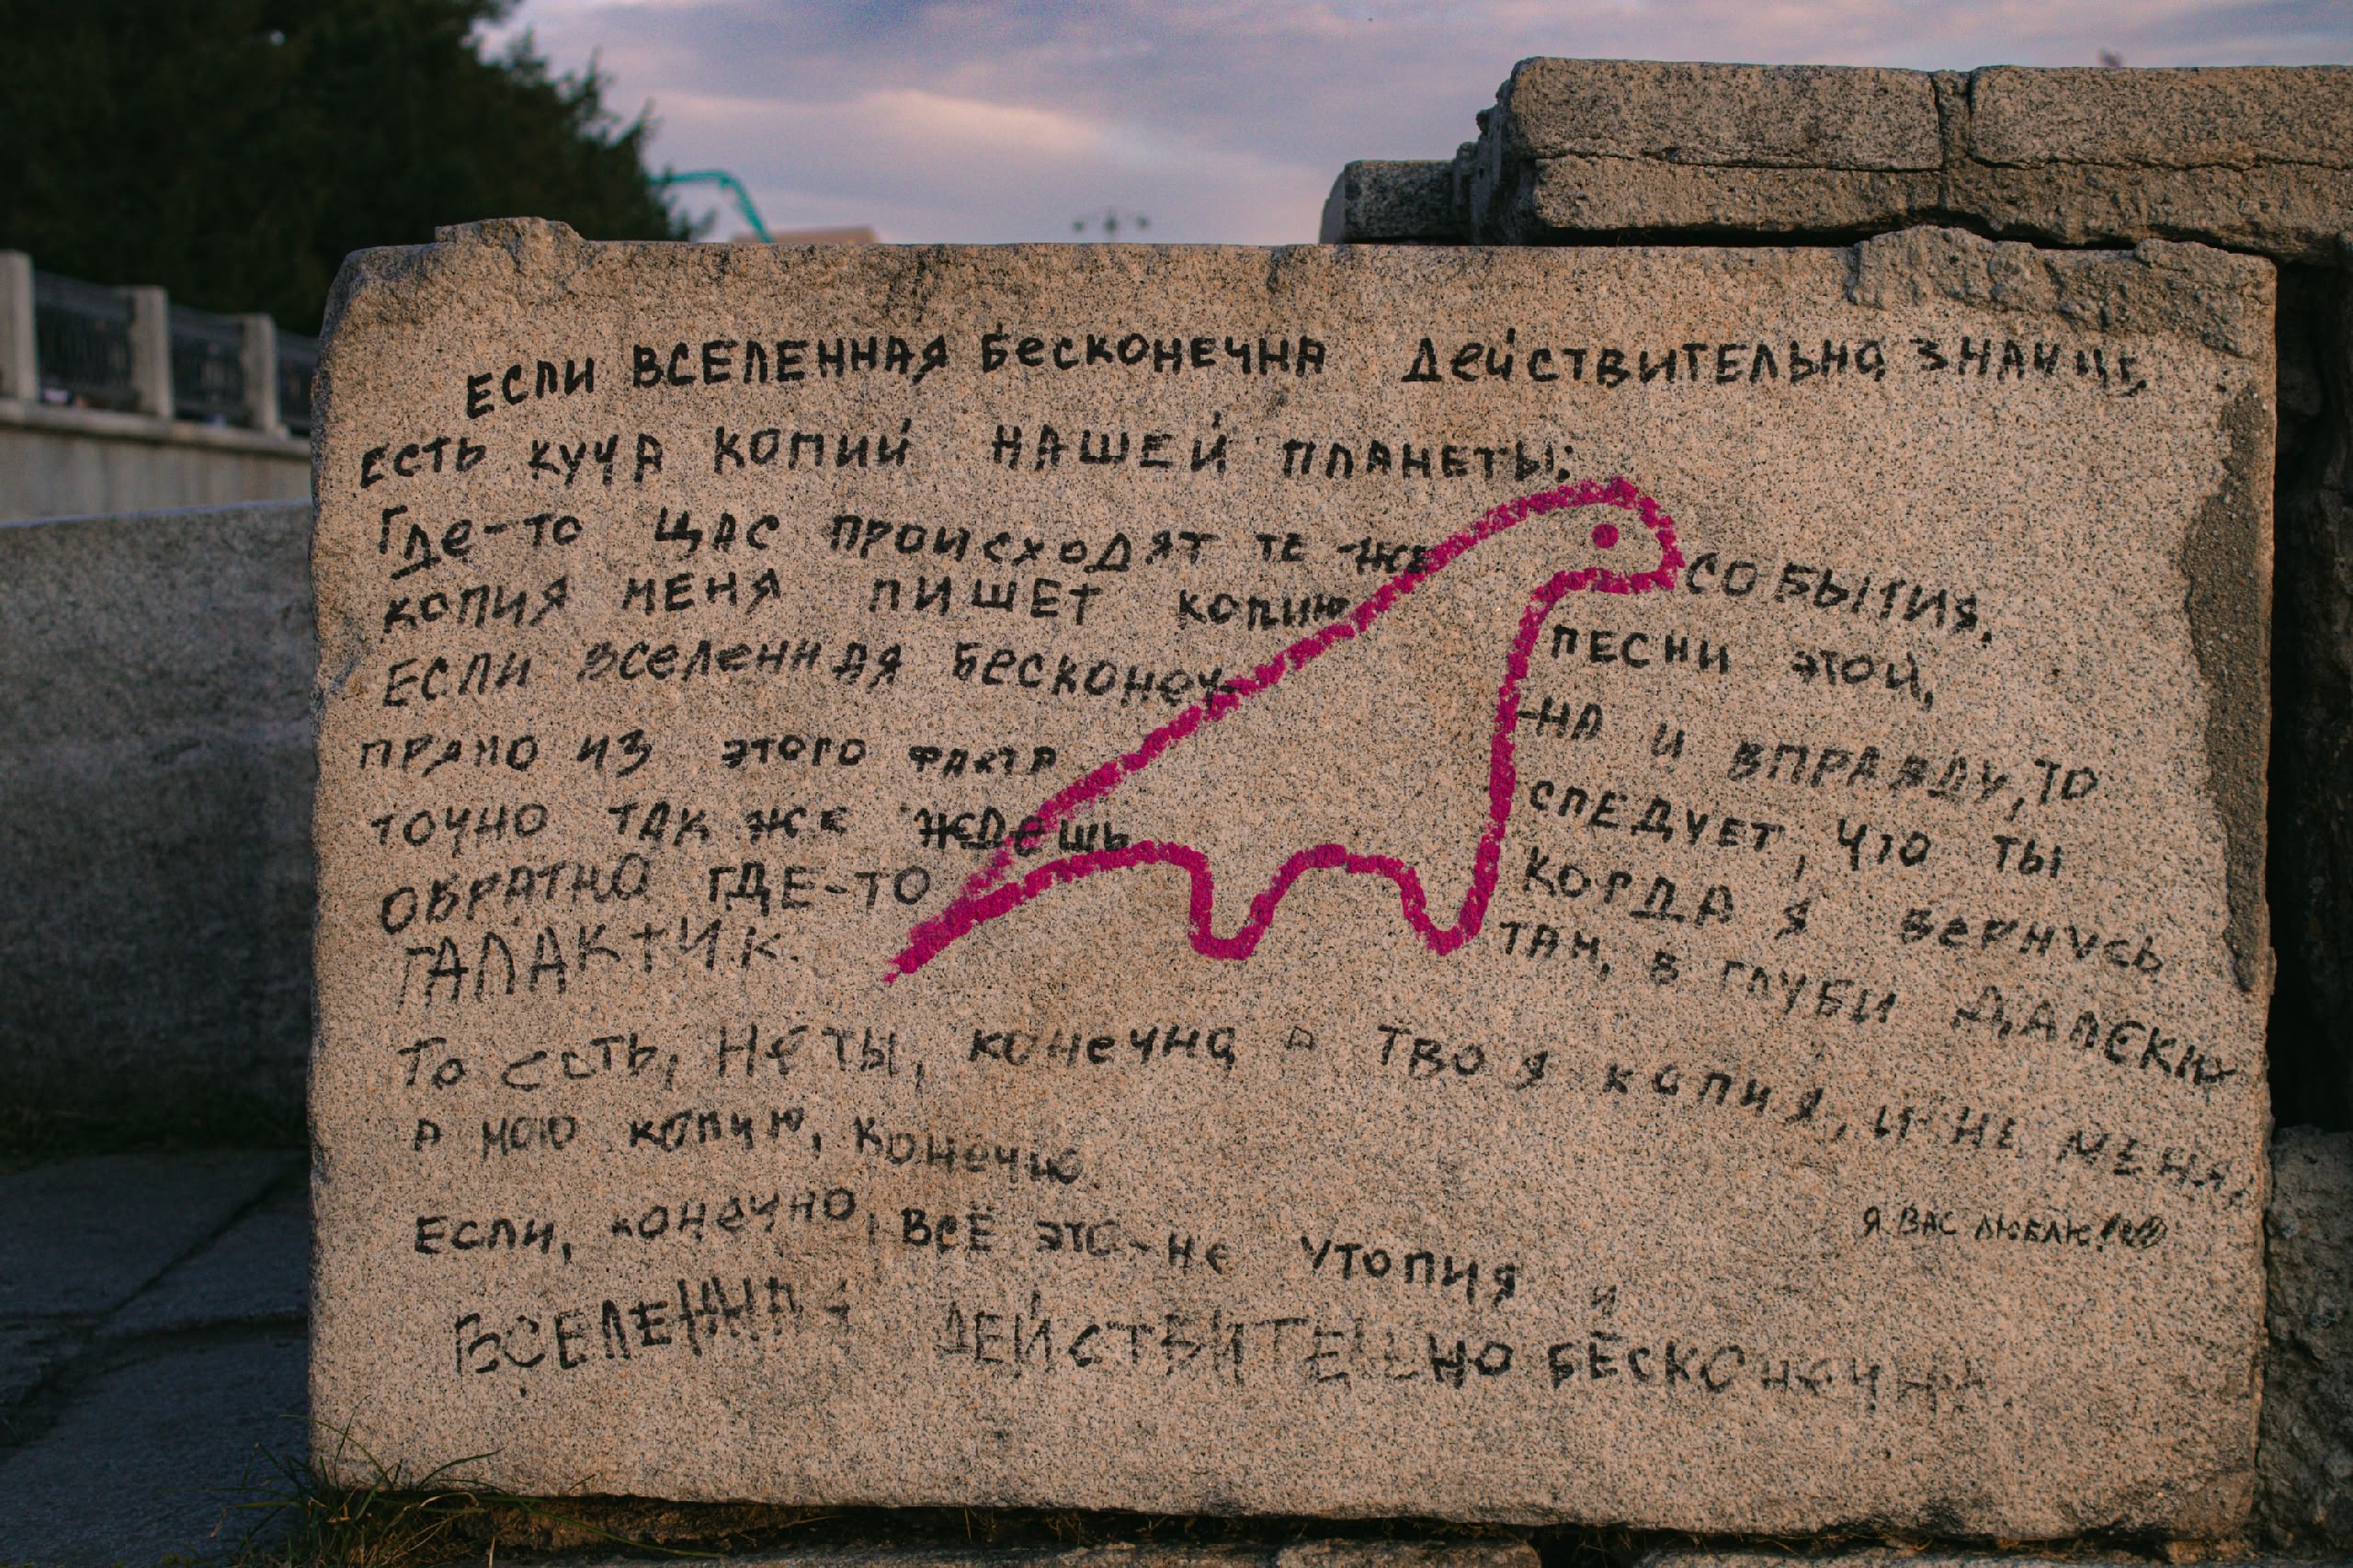 ЕСЛИ ВСЕЛЕННАЯ БЕСКОНЕЧНА ДЕЙСТВИТЕЛЬНО, ЗНАЧИТ,
ЕСТЬ КУЧА КОПИЙ НАШЕЙ ПЛАНЕТЫ:
ГДЕ-ТО ЩАС ПРОИСХОДЯТ ТЕ ЖЕ СОБЫТИЯ,
КОПИЯ МЕНЯ ПИШЕТ КОПИЮ ПЕСНИ ЭТОЙ,
ЕСЛИ ВСЕЛЕННАЯ БЕСКОНЕЧ-НА И ВПРАВДУ, ТО
ПРЯМО ИЗ ЭТОГО ФАКТА СЛЕДУЕТ, ЧТО ТЫ
ТОЧНО ТАК ЖЕ ЖДЕШЬ КОГДА Я ВЕРНУСЬ
ОБРАТНО ГДЕ-ТО ТАМ, В ГЛУБИ ДАЛЁКИХ
ГАЛАКТИК.
ТО ЕСТЬ, НЕ ТЫ, КОНЕЧНО, А ТВОЯ КОПИЯ, И НЕ МЕНЯ,
А МОЮ КОПИЮ, КОНЕЧНО.
ЕСЛИ, КОНЕЧНО, ВСЁ ЭТО-НЕ УТОПИЯ И
ВСЕЛЕННАЯ ДЕЙСТВИТЕЛЬНО БЕСКОНЕЧНА
Я ВАС ЛЮБЛЮ!